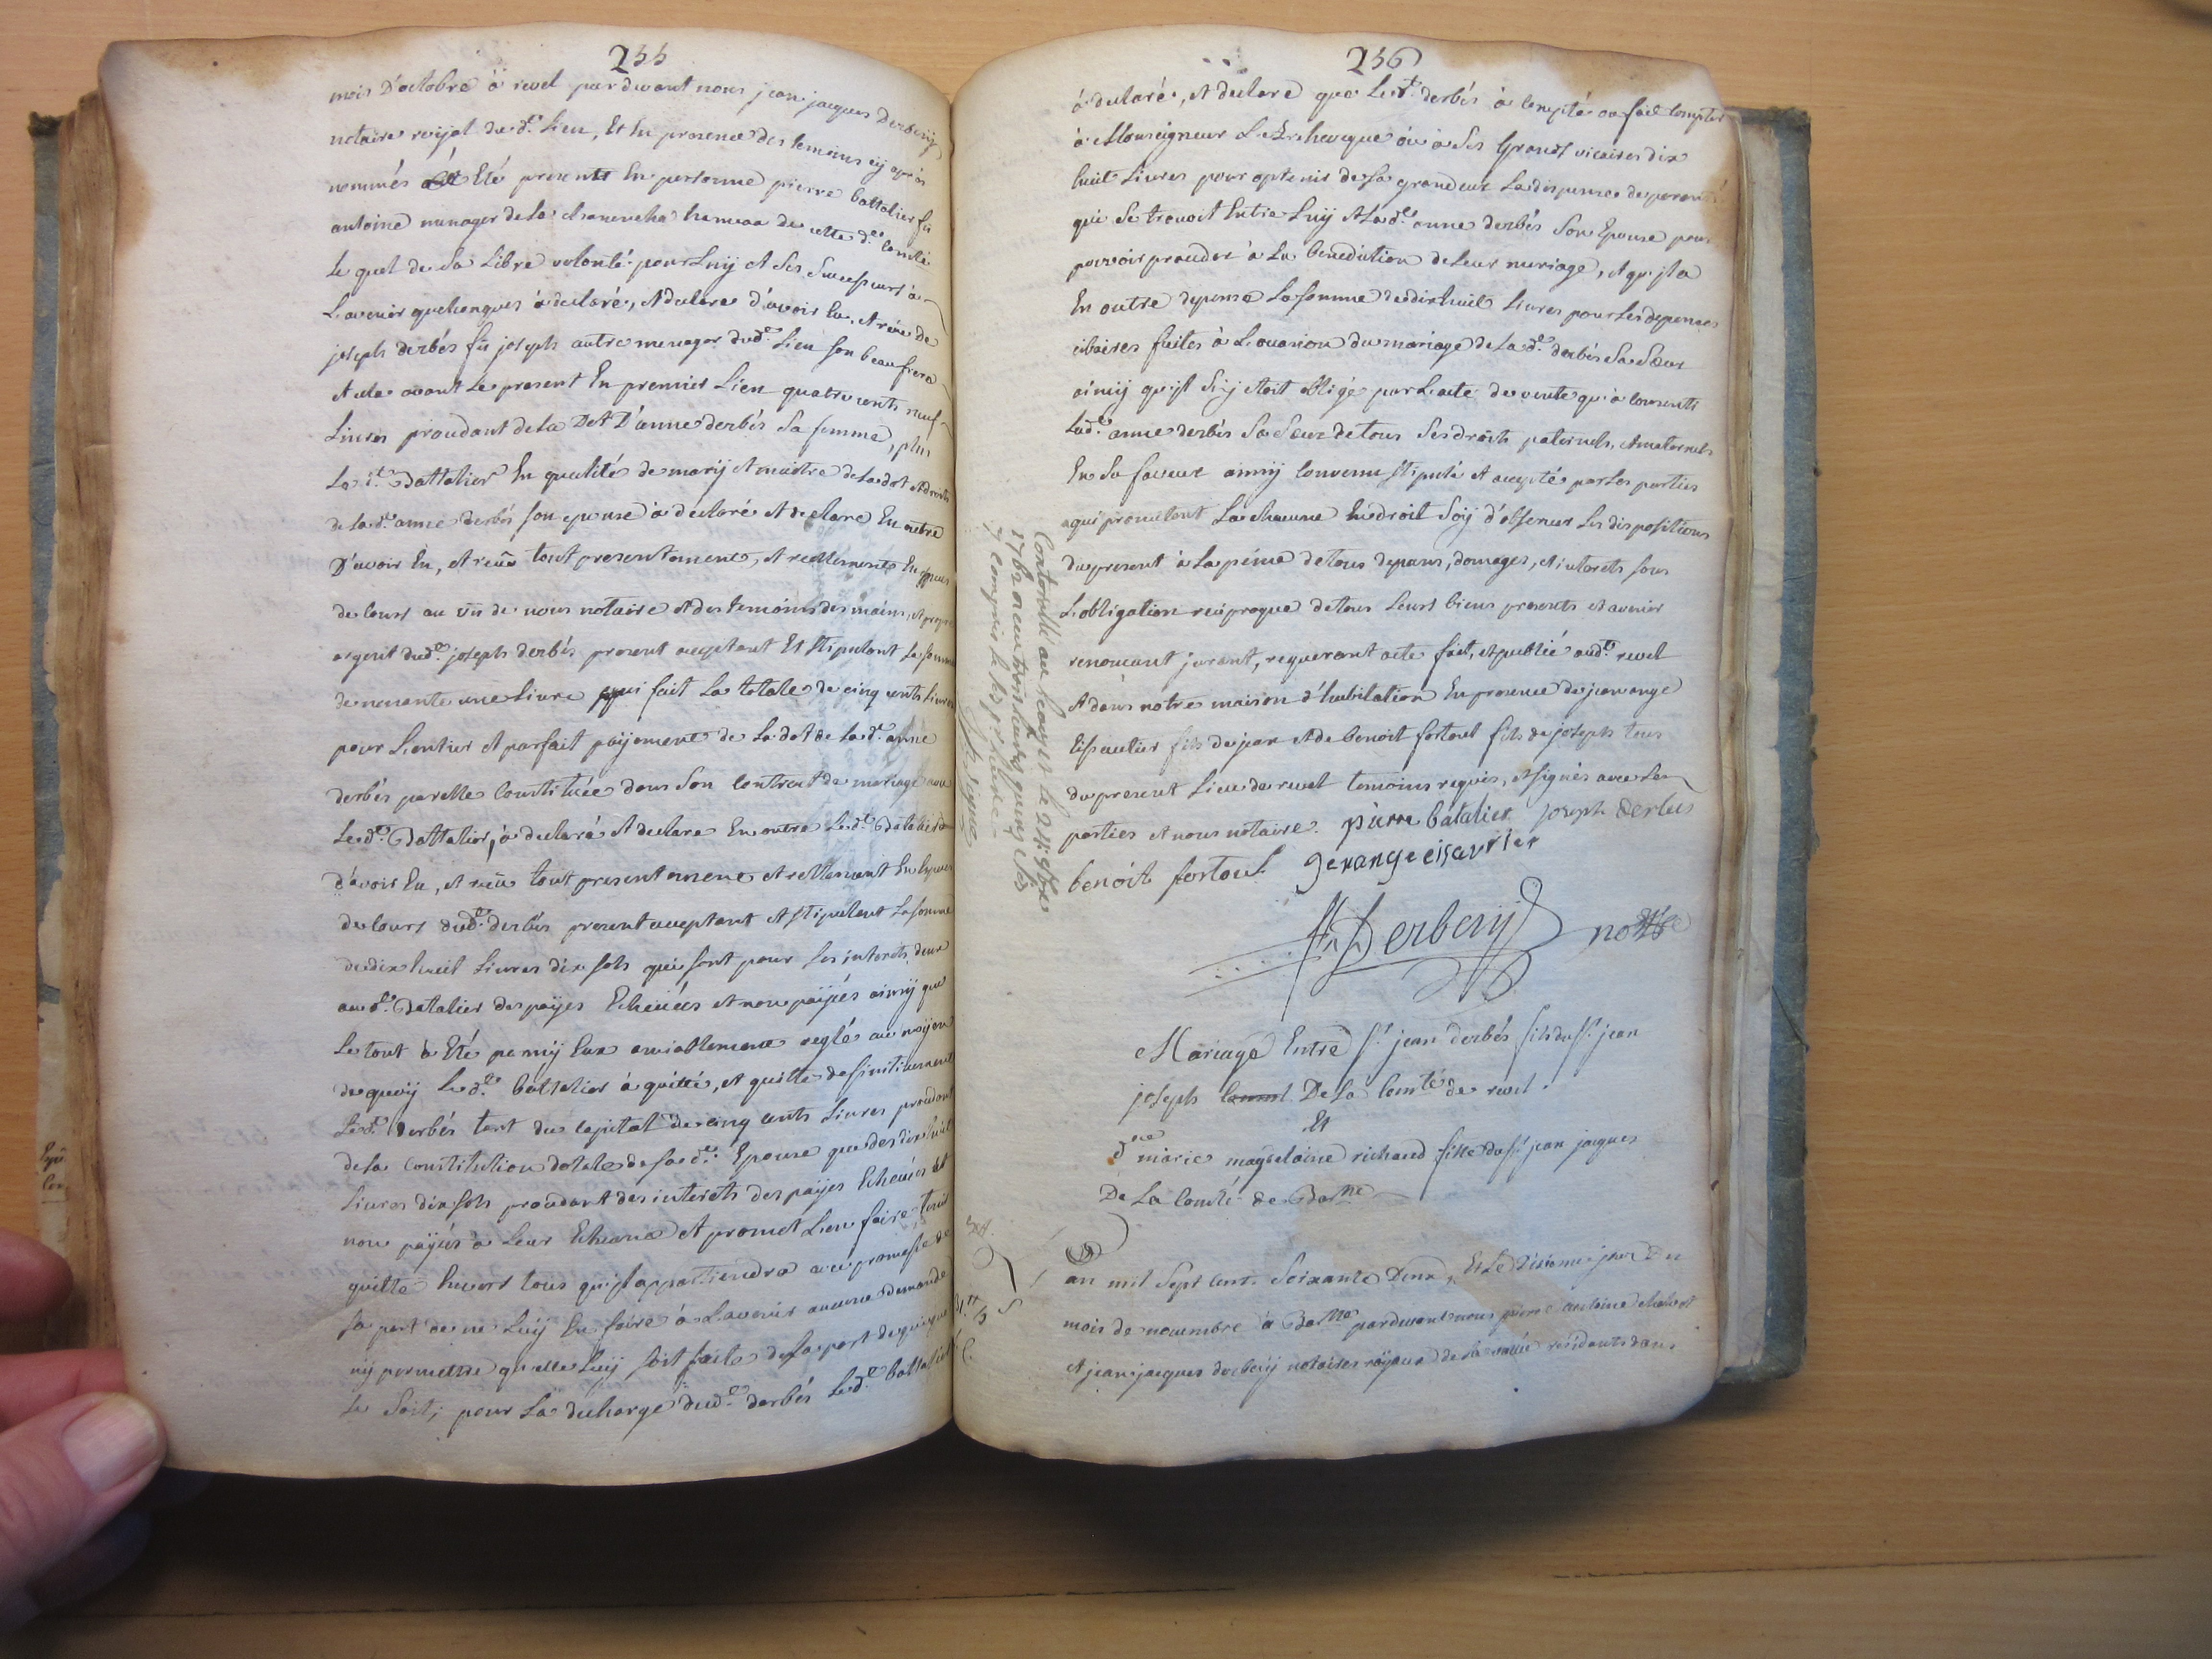 255
mois D'octobre à revel pardevant nous jean jacques Derbesy
notaire royal dud.t Lieu, Et En presence des temoins cy après
nommés Eté present En personne pierre battalier fû
antoine menager de la hameau de cette d.e comté
Le quel de Sa Libre volonté pour Luij et Ses Successeurs à
L'avenir quelconques à declaré, et declare d'avoir Eu, et reçu de
joseph derbés fû joseph autre menager dud.t Lieu son beau frere
et cela avant Le present En premier Lieu quatre cents neuf
Livres procedant de La Dot D'anne derbés Sa femme, plus
Le d.t Battalier En qualité de mary et maitre de La dot et droits
de La d.e anne derbés son epouse à declaré et declare En outre
D'avoir Eu, et reçû tout presentement, et reellement En especes
de cours au vû de nous notaire et des temoins des mains, et propre
argent dud.t joseph derbés present acceptant Et stipulant La somme
de nonante une Livre qui fait La totale de cinq cents Livres
pour L'entier et parfait payement de La dot de La d.e anne
derbés par elle Constituée dans Son Contract de mariage avec
Le d.t Battalier, à declaré et declare En outre Le d.t Batalier
d'avoir Eu, et reçû tout presentement et reellement En especes
de cours dud.t derbés present acceptant et stipulant La somme
de dix huit Livres dix sols qui sont pour Les interets deus
au d.t Batalier des payes Echeuës et non payées ainsy que
Le tout à Eté parmy Eux amiablement reglé au moyen
de quoy Le d.t battalier à quitté, et quitte definitivement
Le d.t derbés tant du capital de cinq cents Livres procedant
de La Constitution dotale de Sa d.e Epouse que des dix huit
Livres dix sols procedant des interets des payes Echeuës et
non payées à Leur Echeance et promet L'en faire tenir
quitte Envers tous qu'il appartiendra avec promesse de
sa part de ne Luy En faire à L'avenir aucune demande
ny permettre qu'elle Luy soit faite de La part de qui que
ce Soit; pour La decharge dud.t derbés Le d.t battalier
256
à declaré, et declare que Le d.t derbés à compté ou fait compter
à Monseigneur L'Archeveque ou à Ses Grands vicaires dix
huit Livres pour optenir de Sa grandeur La dispense de parenté
qui Se trouvoit Entre Luy et La d.e anne derbés Son Epouse pour
pouvoir proceder à La benediction de Leur mariage, et qu'il a
En outre depensé La somme de dix huit Livres pour Les depenses
cibaires faites à L'occasion du mariage de La d.e derbés Sa Sœur
ainsy qu'il S'y étoit obligé par L'acte de vente qu'a consenti
Lad.e anne derbés Sa Sœur de tous Ses droits paternels, et maternels
En Sa faveur ainsy convenu stipulé et accepté par Les parties
qui promettent La chacune En droit Soy d'observer Les dispositions
du present à La peine de tous depans, domages, et interets sous
L'obligation reciproque de tous Leurs biens presents et avenir
renonçant jurant, requerant acte fait, et publié aud.t revel
et dans nôtre maison d'habitation En presence de jean ange
Eissautier fils de jean et de benoit fortoul fils de joseph tous
du present Lieu de revel temoins requis, et signés avec Les
parties et nous notaire. pierre batalier joseph derbes
benoit fortoul jexange eissavtier
Derbesy no.re
Controllé au Lauzet le 24 9bre
1762 reçu trois livres quinze sols
y compris le
Mariage Entre s.r jean derbés fils du s.r jean
joseph De La Com.té de revel.
Et
d.lle marie magdelaine richaud fille du s.r jean jacques
De La Comté de Bar.nne
L'an mil Sept Cent Soixante Deux, Et Le Dixieme jour Du
mois de novembre à Bar.nne pardevant nous pierre antoine
et jean jacques derbesy notaires royaux de La vallée residents dans